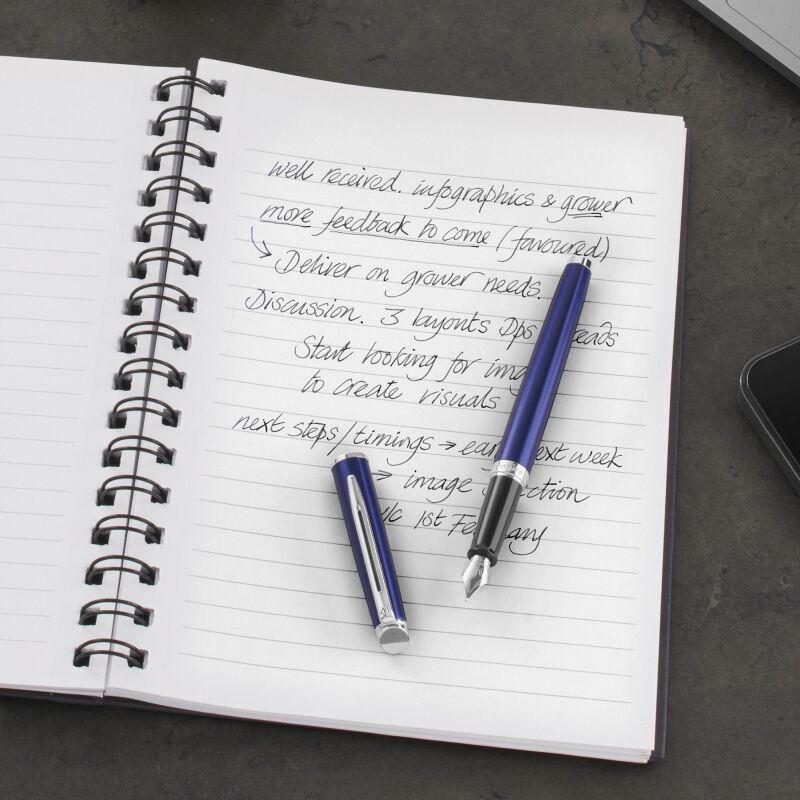 well received. infographics & grower
more feedback to come (favoured)
↳ Deliver on grower needs.
Discussion. 3 layouts Dps
Start looking for
to create visuals
next steps/timings → next week
→ image
1st